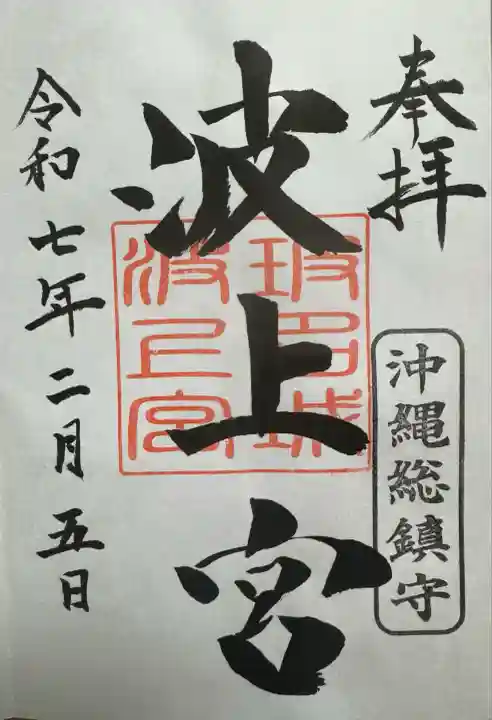 奉拝
沖縄総鎮守
波上宮
令和七年二月五日
波上宮